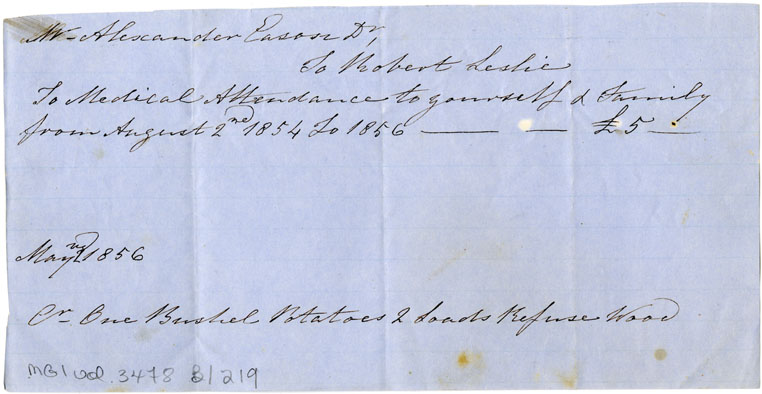 Mr Alexander Eason Dr,
To Robert Leslie
To Medical Attendance to yourself & Family
from August 2nd 1854 To 1856 — — £5 —
May 2nd 1856
Cr One Bushel Potatoes 2 Loads Refuse Wood
MG1 vol. 3478 B/219